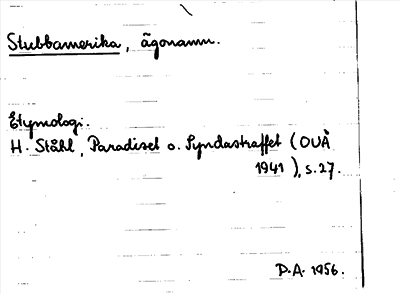 Stubbamerika, ägonamn.
Etymologi.
H. Ståhl, Paradiset o. Syndastraffet (OUÅ
1941), s. 27.
D.A. 1956.